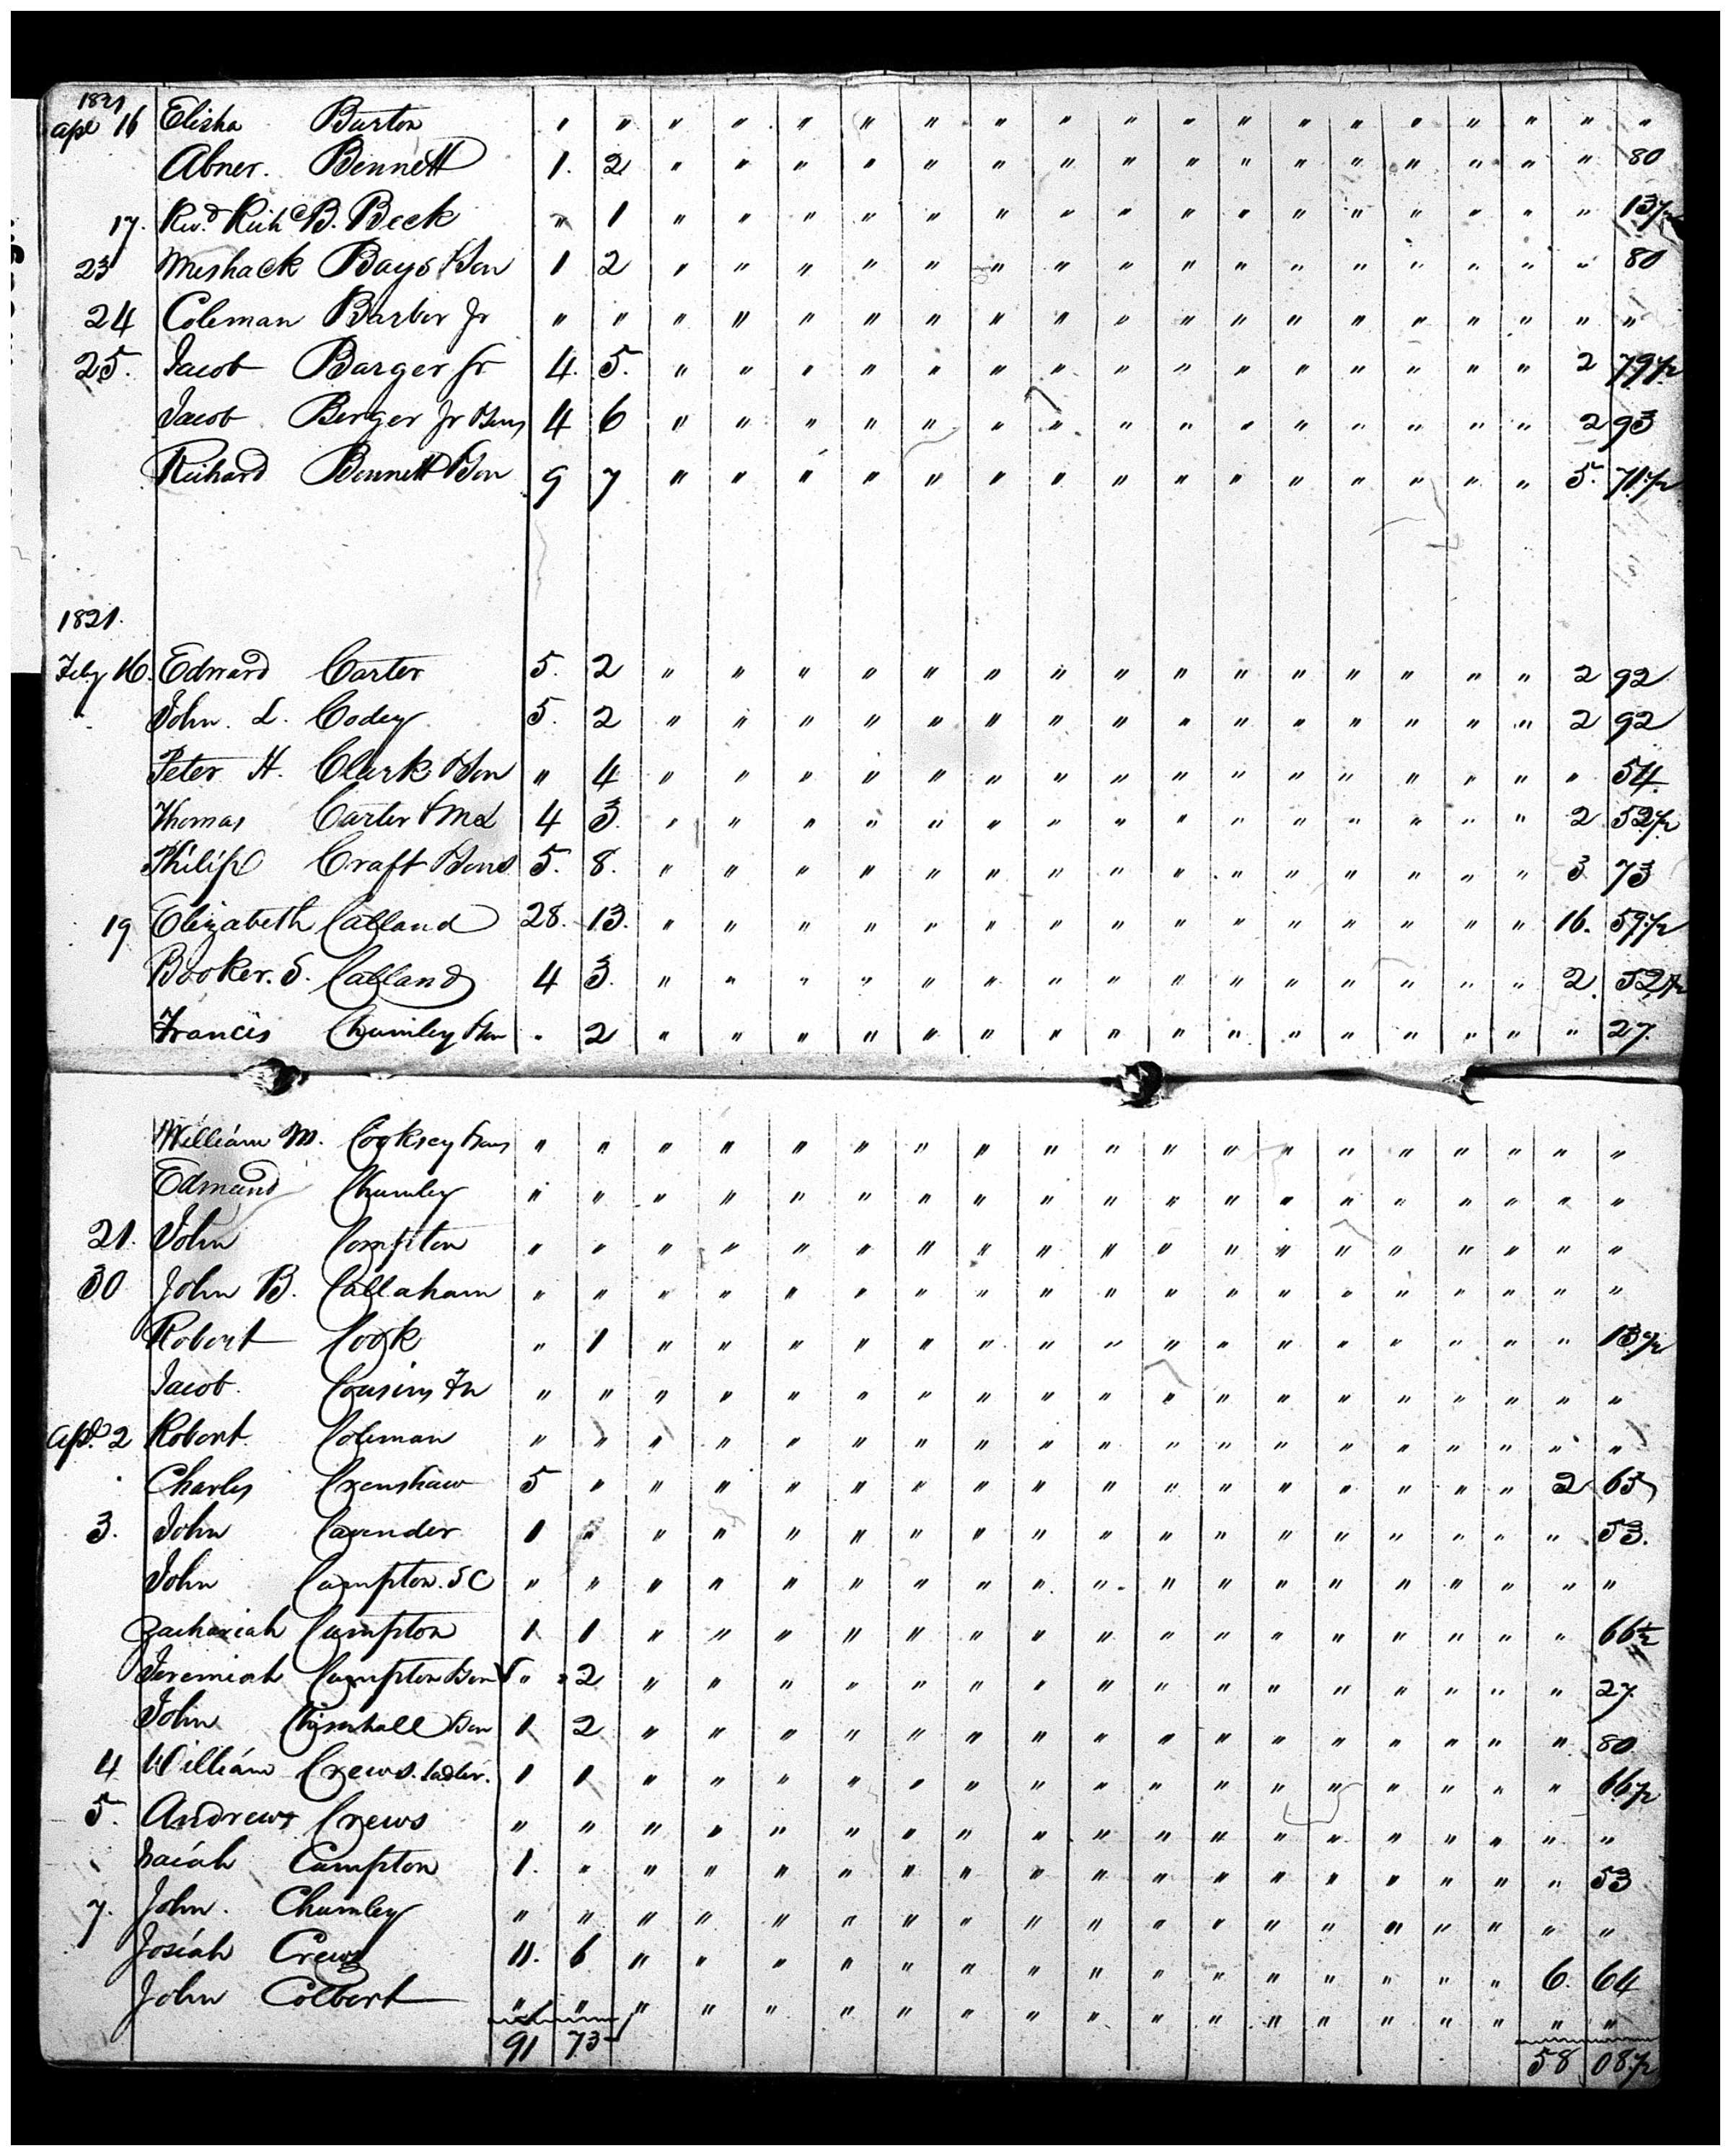 1821
Apl 16 Elisha Burton " " " " " " " " " " " " " " " " " " "
Abner. Bennett 1. 2 " " " " " " " " " " " " " " " " 80
17. Revd. Richd B. Beck " 1 " " " " " " " " " " " " " " " " 13 1/2
23 Meshack Bays & Son 1 2 " " " " " " " " " " " " " " " " 80
24 Coleman Barber Jr " " " " " " " " " " " " " " " " " " "
25. Jacob Barger Sr 4. 5. " " " " " " " " " " " " " " " 2 79 1/2
Jacob Berger Jr & Sons 4 6 " " " " " " " " " " " " " " " 2 93
Richard Bennett & Son 9 7 " " " " " " " " " " " " " " " 5. 71 1/2
1821.
Feby 16. Edward Carter 5. 2 " " " " " " " " " " " " " " " 2 92
John. L. Codey 5. 2 " " " " " " " " " " " " " " " 2 92
Peter H. Clark & Son " 4 " " " " " " " " " " " " " " " " 54
Thomas Carter 4 3. " " " " " " " " " " " " " " " 2 52 1/2
Philip Craft & Sons 5. 8. " " " " " " " " " " " " " " " 3 73
19 Elizabeth Calland 28. 13. " " " " " " " " " " " " " " " 16. 59 1/2
Booker. S. Calland 4 3. " " " " " " " " " " " " " " " 2. 52 1/2
Francis Chumley & Son " 2 " " " " " " " " " " " " " " " " 27.
William M. Cooksey & Sons " " " " " " " " " " " " " " " " " " "
Edmund Chumley " " " " " " " " " " " " " " " " " " "
21. John Compton " " " " " " " " " " " " " " " " " " "
30 John B. Callaham " " " " " " " " " " " " " " " " " " "
Robert Cook " 1 " " " " " " " " " " " " " " " " 13 1/2
Jacob. Cousins Fn " " " " " " " " " " " " " " " " " " "
Apl. 2 Robert Coleman " " " " " " " " " " " " " " " " " " "
Charles Crenshaw 5 " " " " " " " " " " " " " " " " 2 65
3. John Cavender 1 " " " " " " " " " " " " " " " " " 53.
John Cumpton. SC " " " " " " " " " " " " " " " " " " "
Zachariah Cumpton 1 1 " " " " " " " " " " " " " " " " 66 1/2
Jeremiah Cumpton & Son " 2 " " " " " " " " " " " " " " " " 27
John & Son 1 2 " " " " " " " " " " " " " " " " 80
4 William Crews. sadler. 1 1 " " " " " " " " " " " " " " " " 66 1/2
5. Andrew Crews " " " " " " " " " " " " " " " " " " "
Isaiah Cumpton 1. " " " " " " " " " " " " " " " " " 53
7. John. Chumley " " " " " " " " " " " " " " " " " " "
Josiah Crews 11. 6 " " " " " " " " " " " " " " " 6. 64
John Colbert " " " " " " " " " " " " " " " " " " "
91 73 58 08 1/2